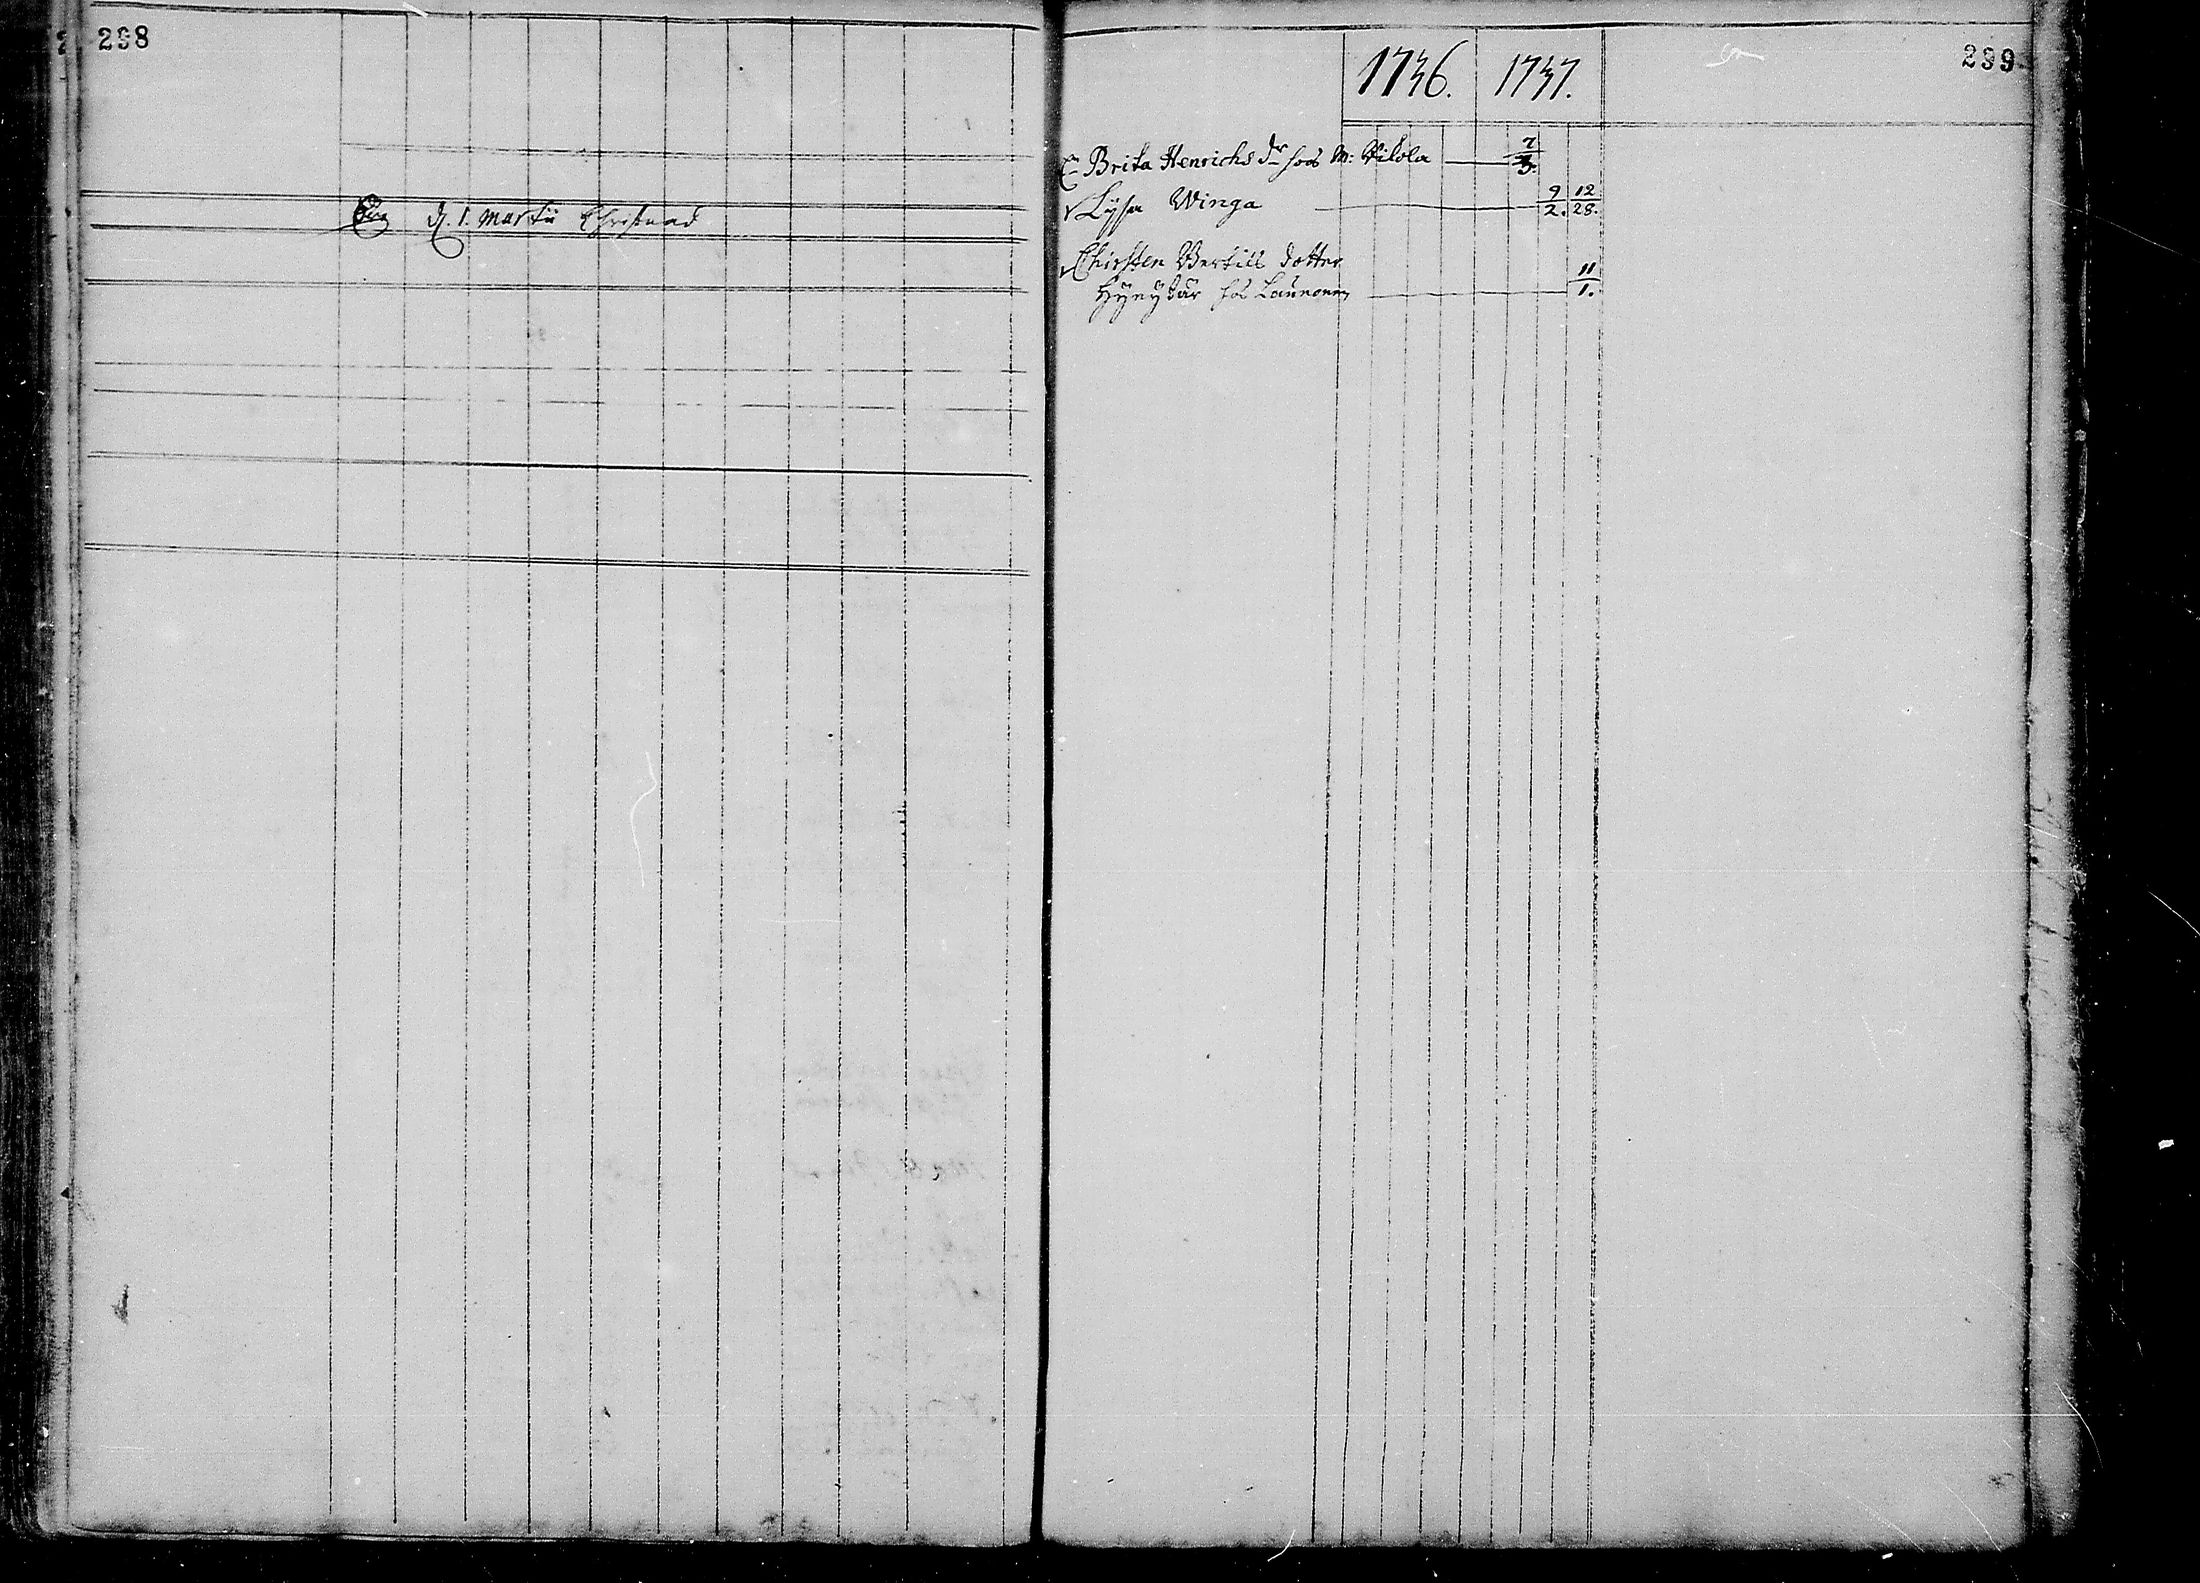 298
d. 1. Martii
299
1736. 1737.
Brita Henrichs dr hoos M: Nikola 7/3.
Lysa Winga 9/2. 12/28.
Chirsten Bertils dotter
hos Launonen 11/1.